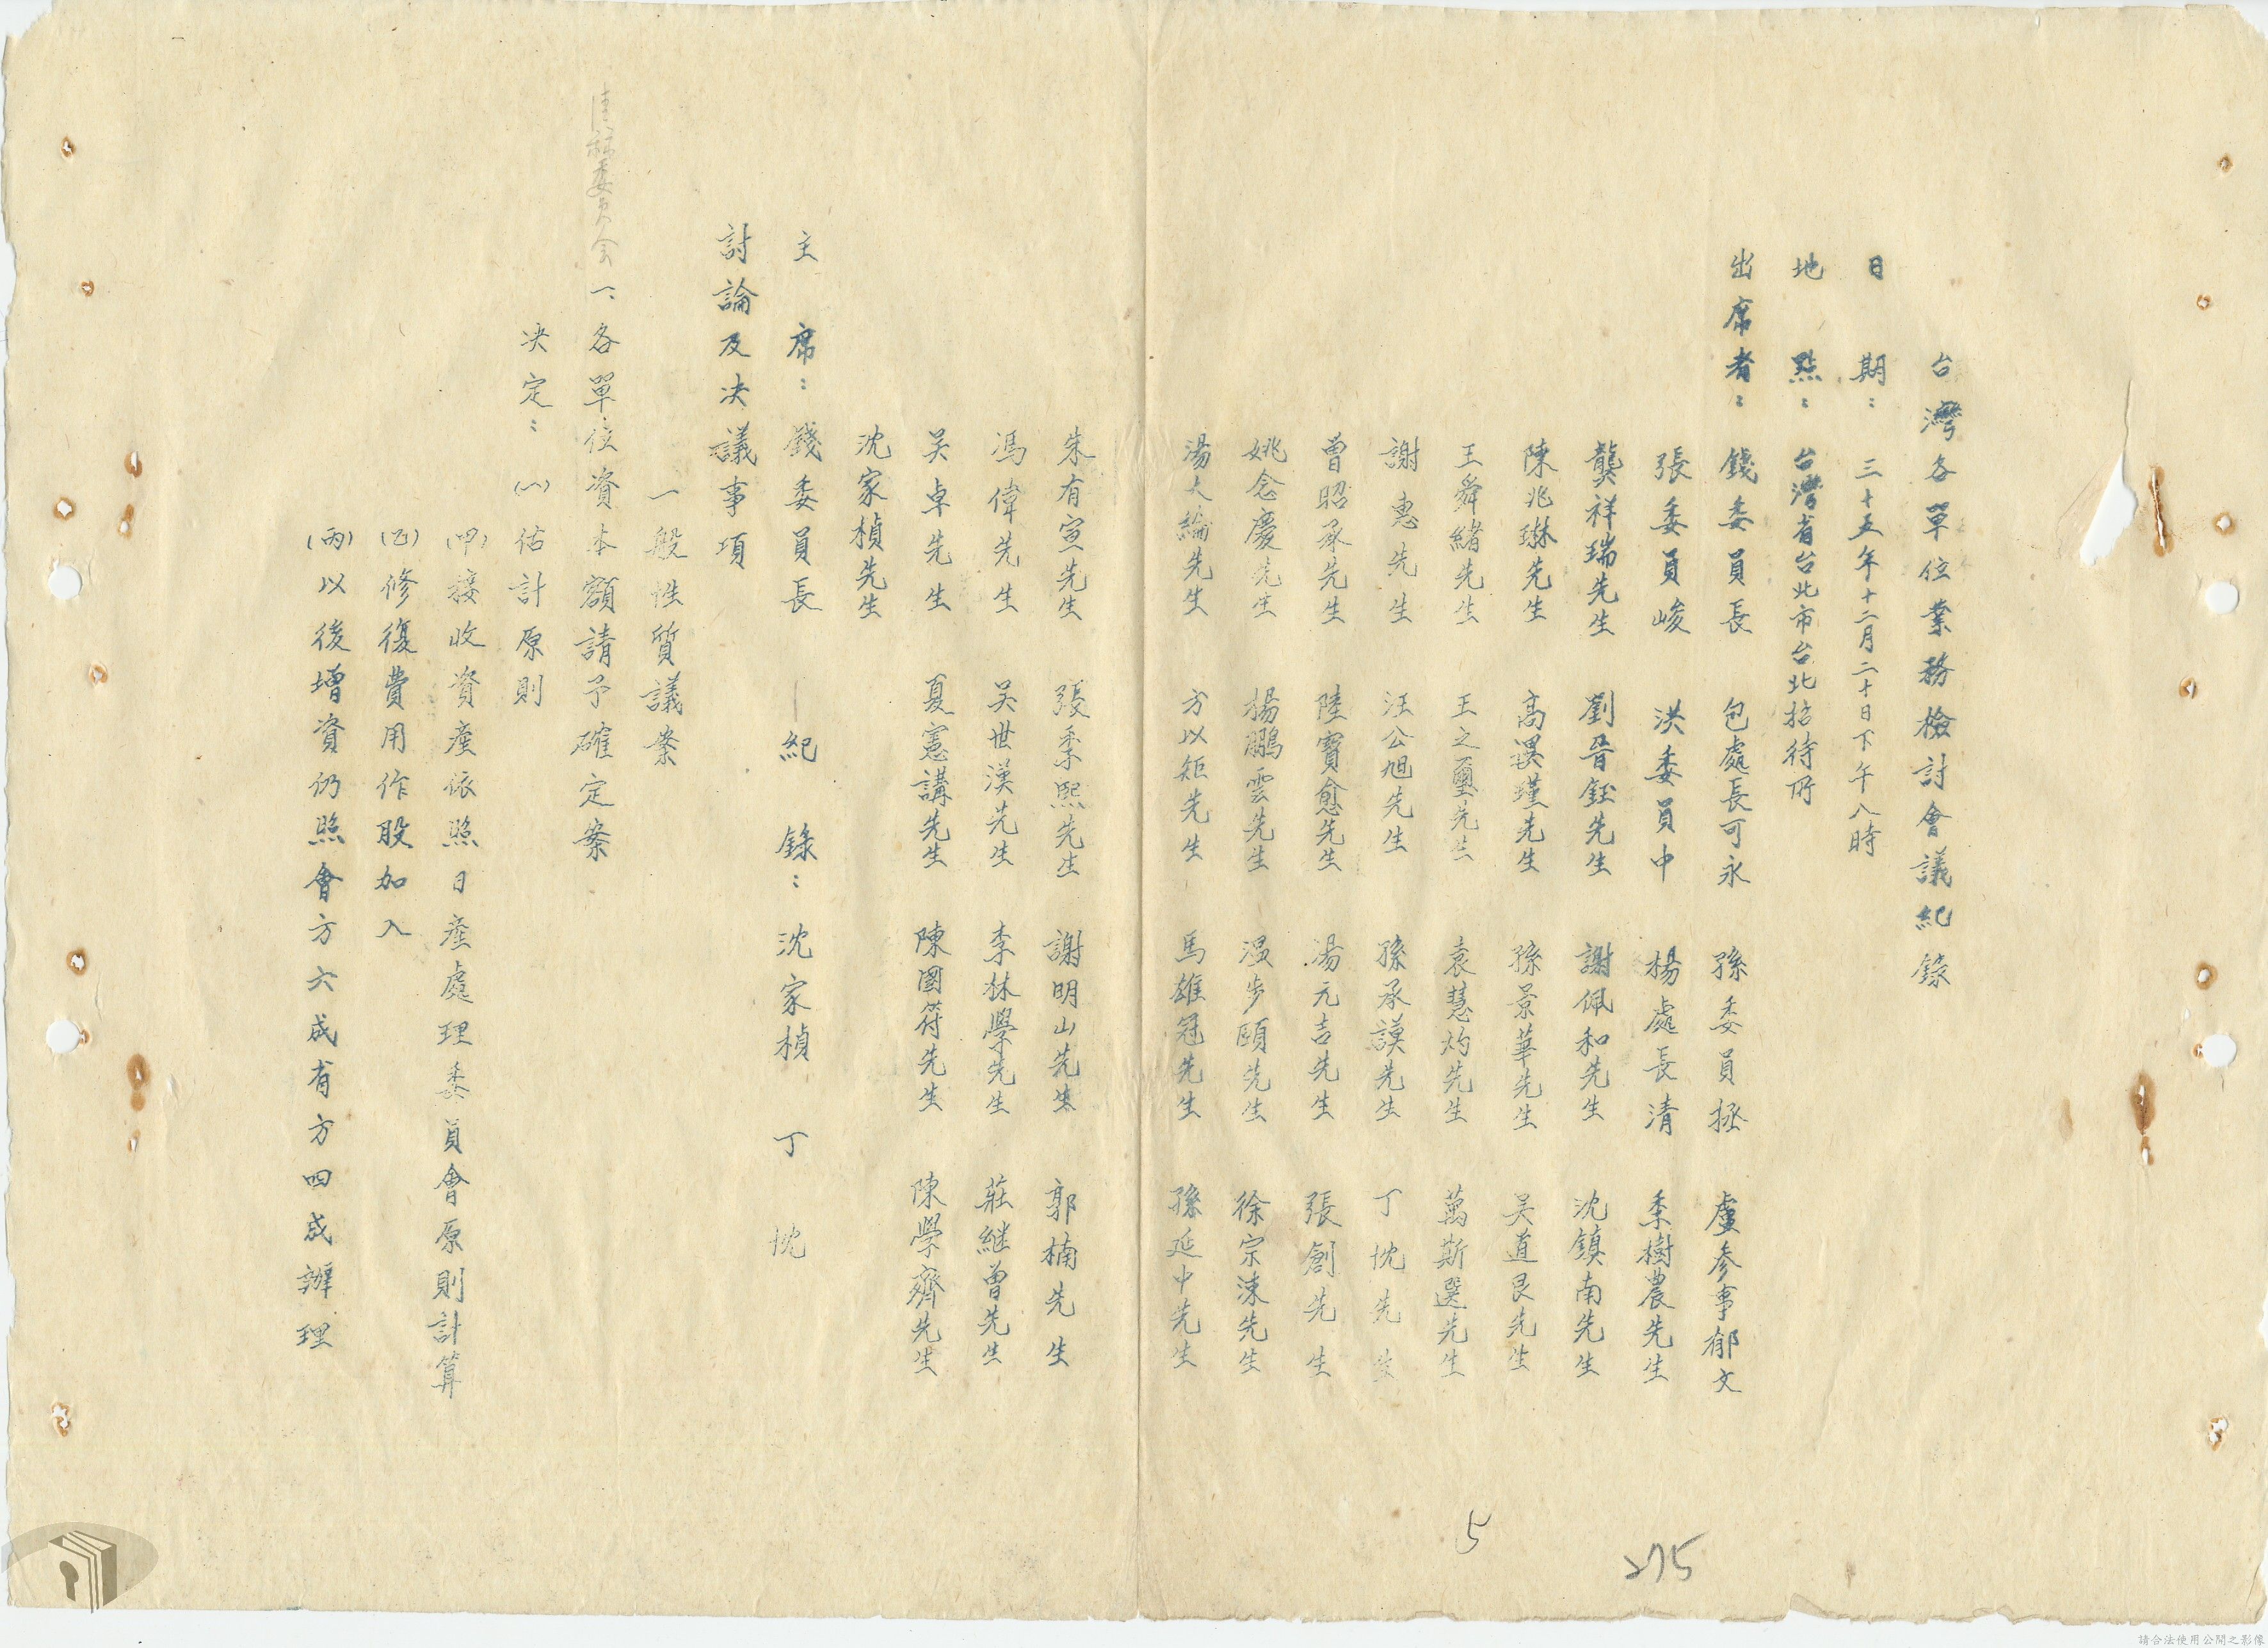 台灣各單位業務檢討會議紀錄
日期：三十五年十二月二十日下午八時
地點：台灣省台北市台北招待所
出席者：錢委員長 包處長可永 孫委員拯 盧參事郁文
張委員峻 洪委員中 楊處長清 季樹農先生
龔祥瑞先生 劉晉鈺先生 謝佩和先生 沈鎮南先生
陳兆琳先生 高禩瑾先生 孫景華先生 吴道艮先生
王舜緒先生 王之璽先生 袁慧灼先生 萬斯選先生
謝惠先生 汪公旭先生 孫承謨先生 丁忱先生
曾昭承先生 陸寶愈先生 湯元吉先生 張創先生
姚念慶先生 楊鵬雲先生 溫步頤先生 徐宗涑先生
湯大綸先生 方以矩先生 馬雄冠先生 孫延中先生
朱有宣先生 張季熙先生 謝明山先生 郭楠先生
馮偉先生 吴世漢先生 李林學先生 莊繼曾先生
吴卓先生 夏憲講先生 陳國符先生 陳學齊先生
沈家楨先生
主席：錢委員長 紀錄：沈家楨 丁忱
討論及決議事項
一般性質議案
委員会
一、各單位資本額請予確定案
決定：(一)估計原則
(甲)接收資產依照日產處理委員會原則計算
(乙)修復費用作股加入
(丙)以後增資仍照會方六成省方四成辦理
5
275
請合法使用公開之影像